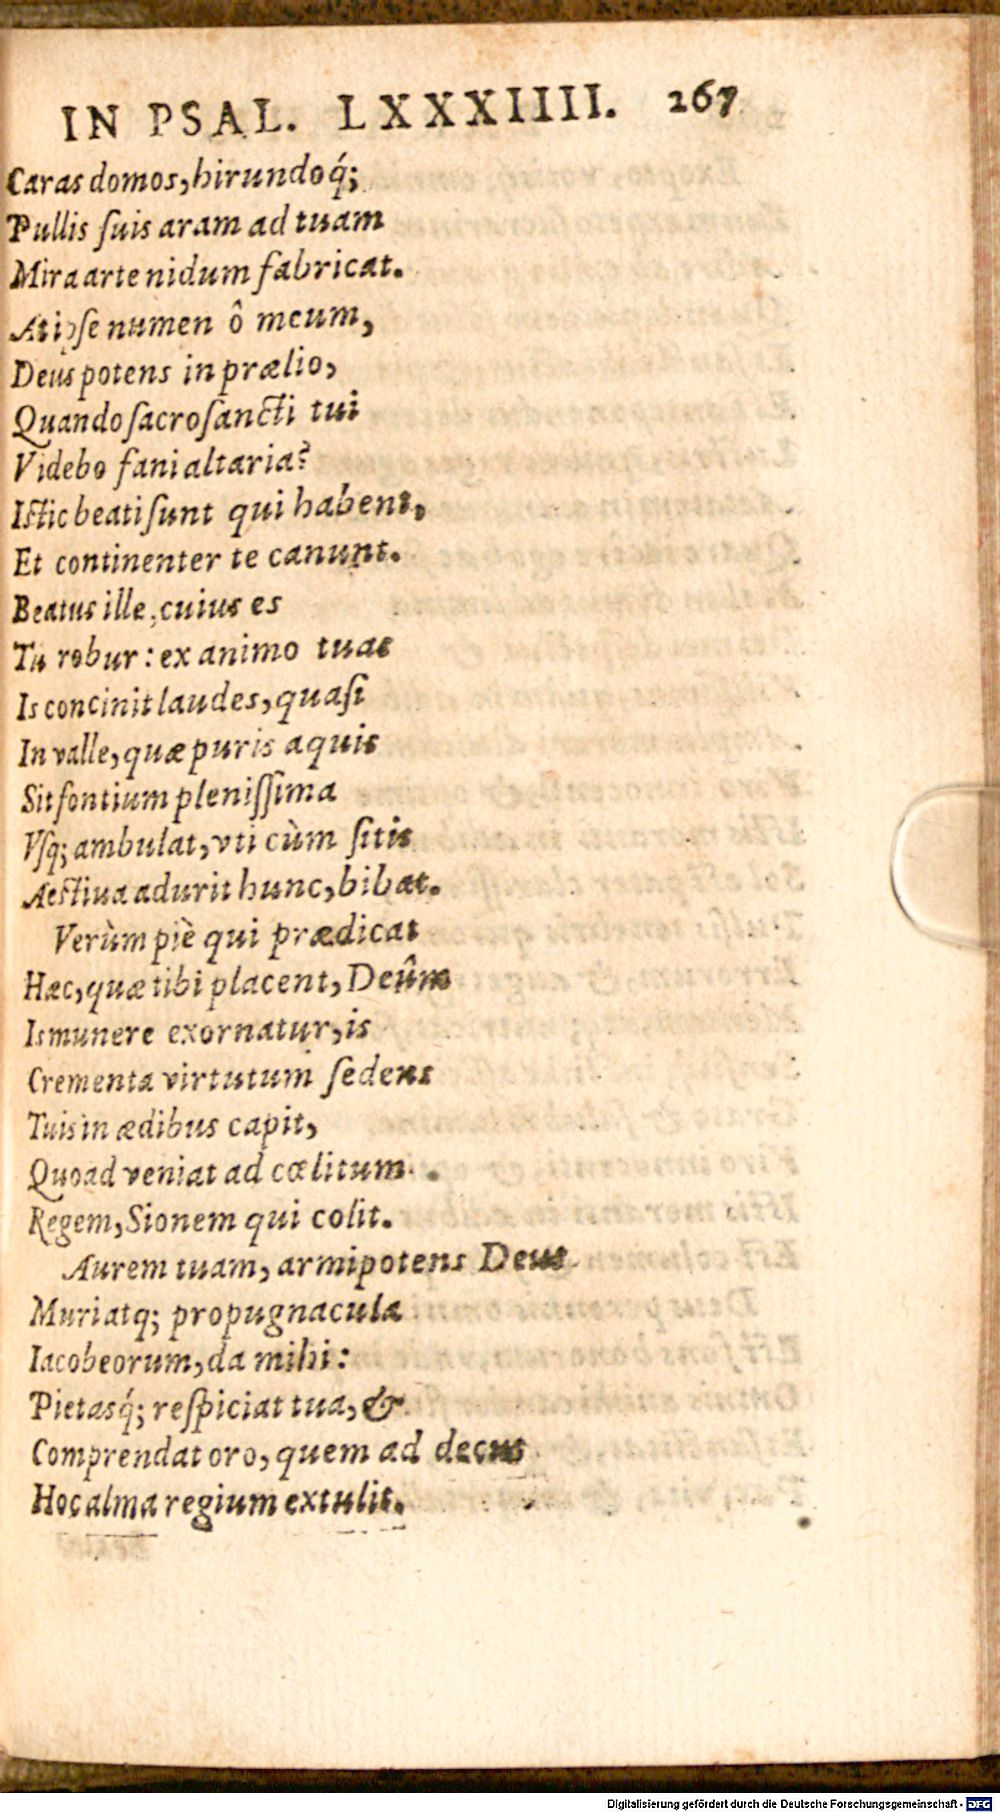 IN PSAL. LXXXIIII. 267
Caras domos, hirundoq́;
Pullis ſuis aram ad tuam
Mira arte nidum fabricat.
At ipſe numen ô meum,
Deus potens in prælio,
Quando ſacroſancti tui
Videbo fani altaria?
Iſtic beati ſunt qui habent,
Et continenter te canunt.
Beatus ille, cuius es
Tu robur: ex animo tuas
Is concinit laudes, quaſi
In valle, quæ puris aquis
Sit fontium pleniſſima
Vſq; ambulat, vti cùm ſitis
Aeſtiua adurit hunc, bibat.
Verùm piè qui prædicat
Hæc, quæ tibi placent, Deûm
Is munere exornatur, is
Crementa virtutum ſedens
Tuis in ædibus capit,
Quoad veniat ad cœlitum
Regem, Sionem qui colit.
Aurem tuam, armipotens Deus
Muriatq; propugnacula
Iacobeorum, da mihi:
Pietasq́; reſpiciat tua, &
Comprendat oro, quem ad decus
Hoc alma regium extulit.
Digitalisierung gefördert durch die Deutsche Forschungsgemeinschaft - DFG